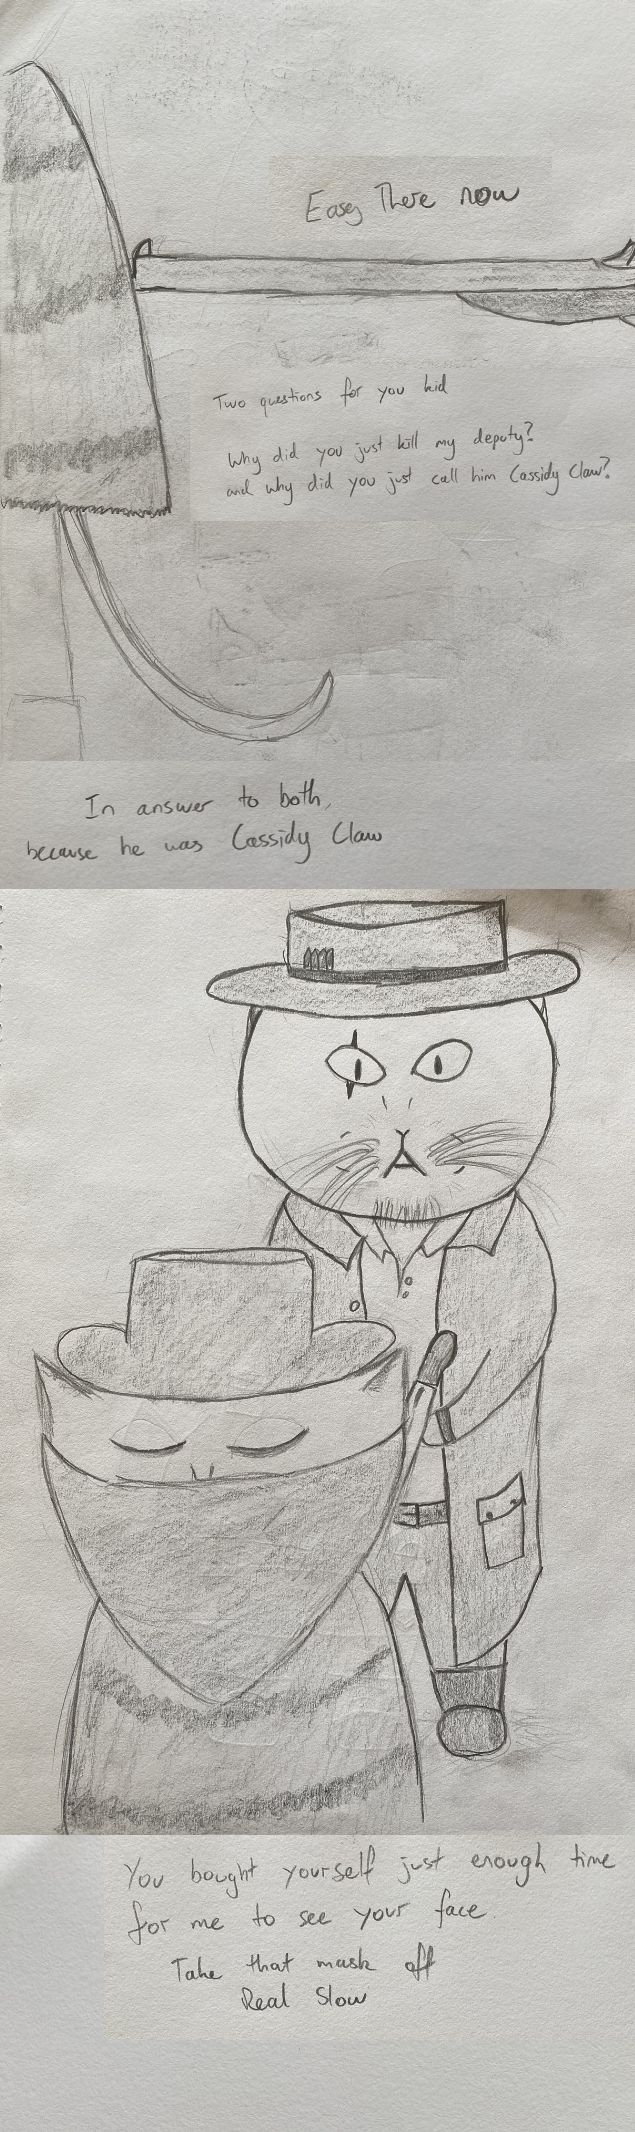 Easy There now
Two questions for you kid
Why did you just kill my deputy?
and why did you just call him Cassidy Claw?
In answer to both,
because he was Cassidy Claw
You bought yourself just enough time
for me to see your face.
Take that mask off
Real Slow